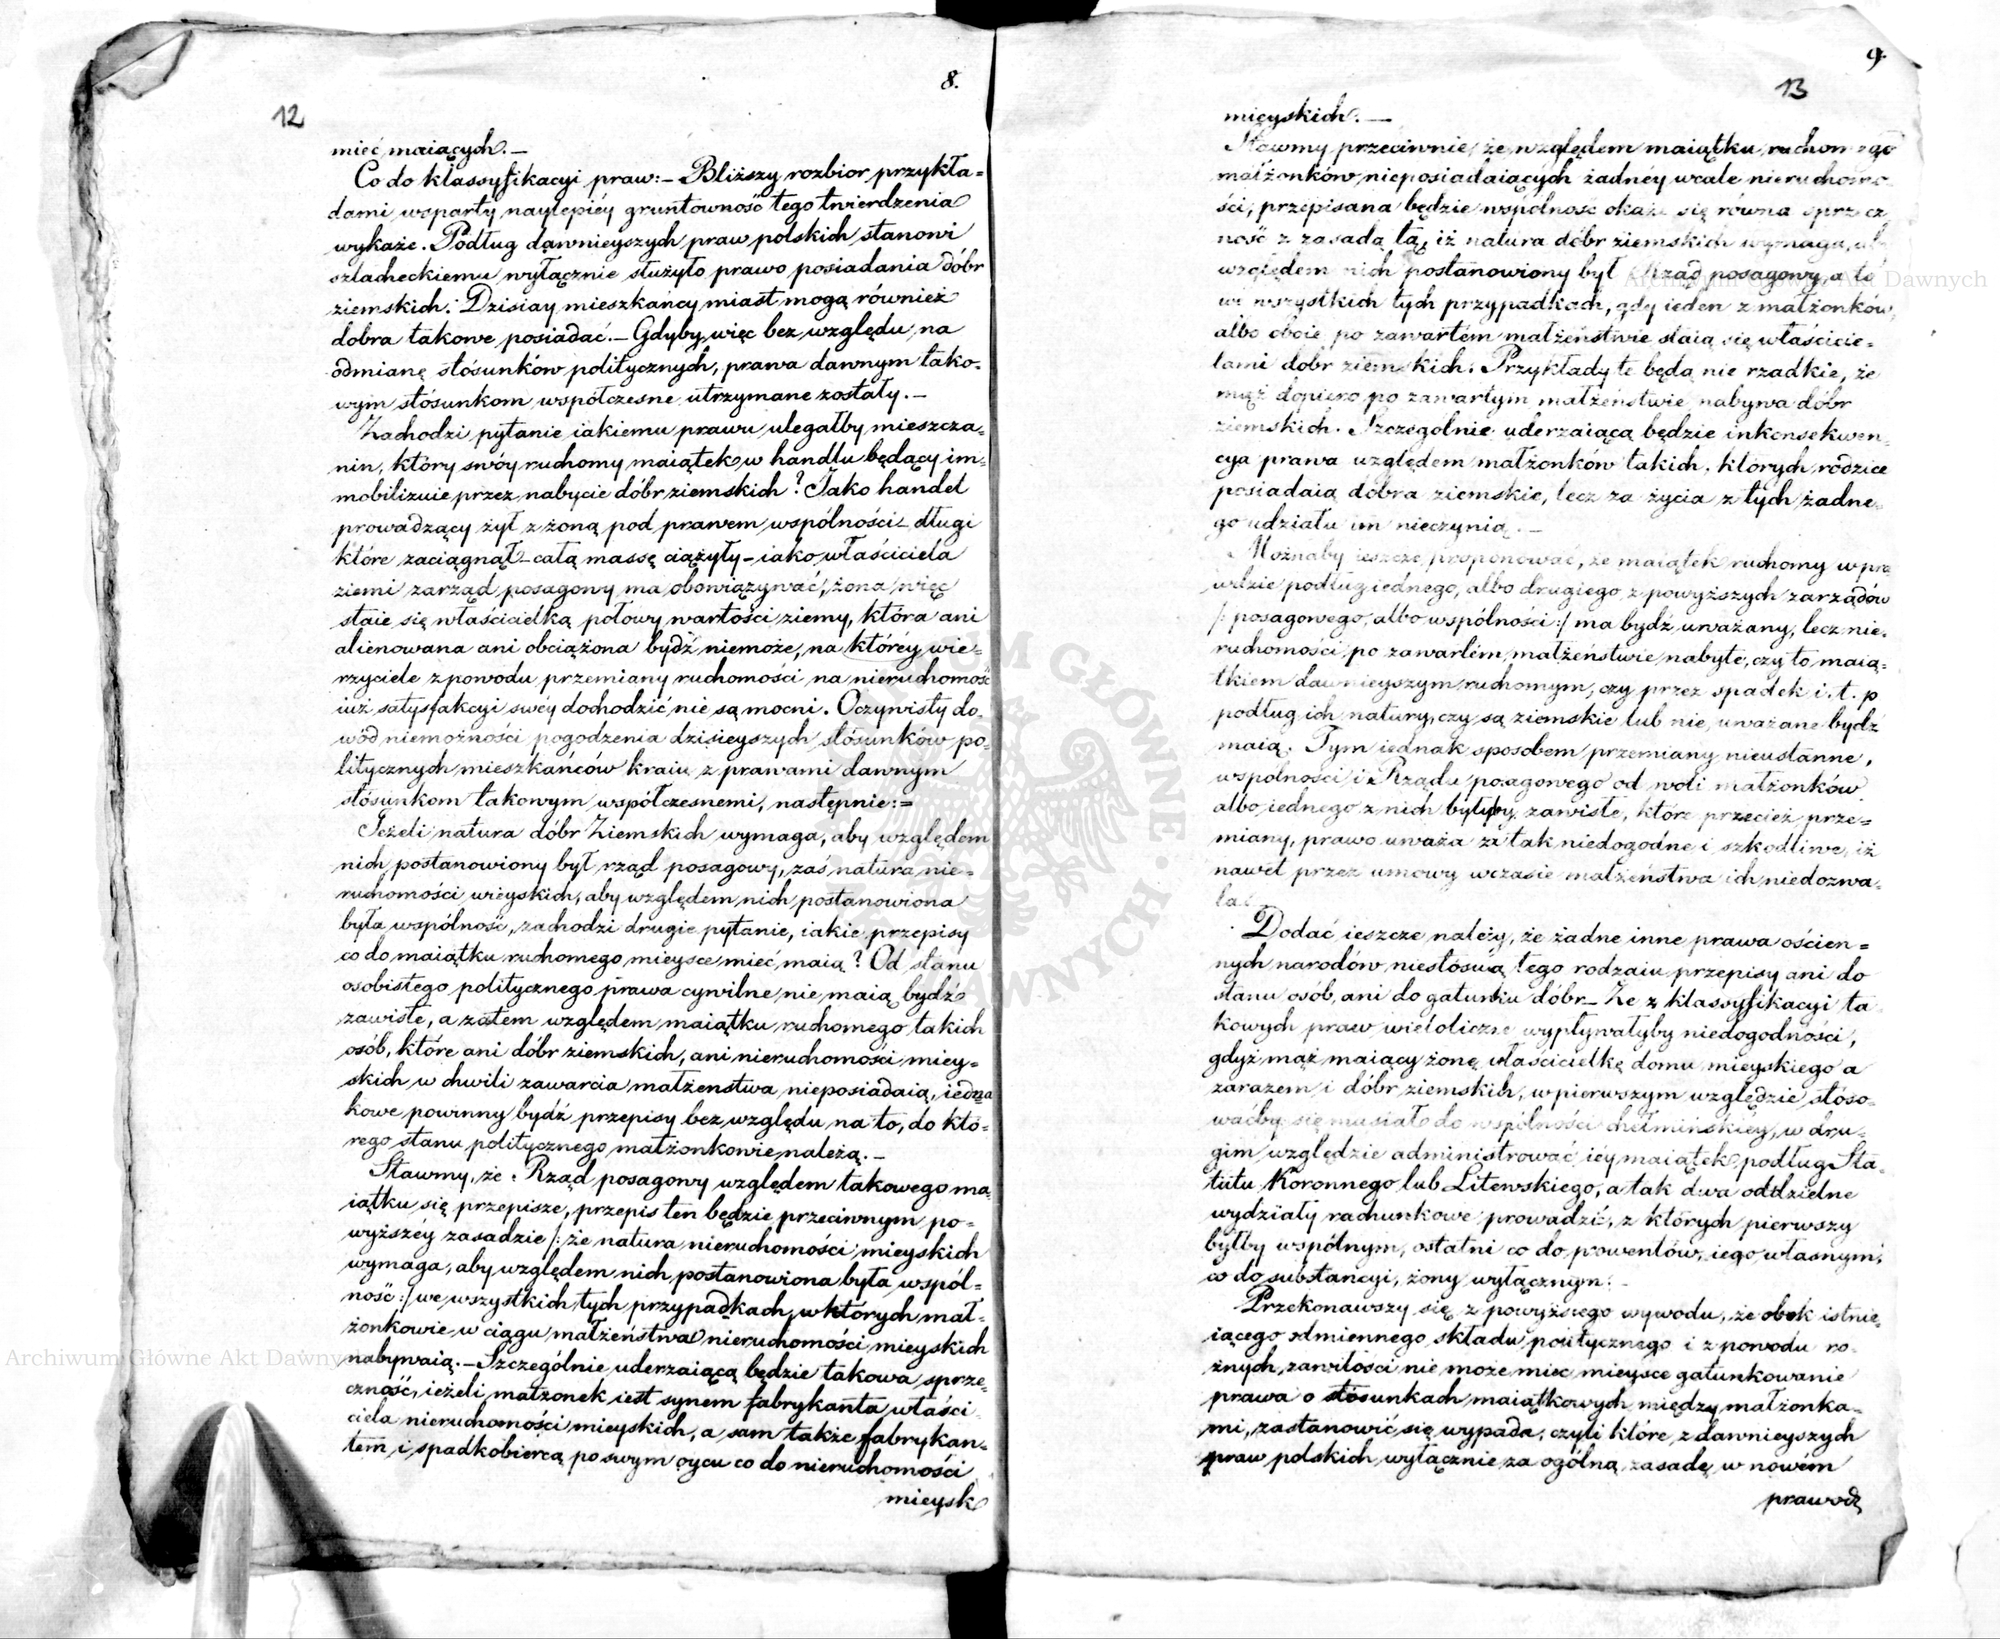 8.
12
mieć maiących. —
Co do klassyfikacyi praw: — Bliższy rozbior przykła=
dami wsparty naylepiéy gruntowność tego twierdzenia
wykaże. Podług dawnieyszych praw polskich stanowi
szlacheckiemu wyłącznie służyło prawo posiadania dóbr
ziemskich: Dzisiay mieszkańcy miast mogą również
dobra takowe posiadać. — Gdyby więc bez względu na
odmianę stósunków politycznych, prawa dawnym tako=
wym stósunkom współczesne utrzymane zostały. —
Zachodzi pytanie iakiemu prawu ulegałby mieszcza=
nin, który swóy ruchomy maiątek w handlu będący im=
mobilizuie przez nabycie dóbr ziemskich? Jako handel
prowadzący żył z żoną pod prawem wspólności — długi
które zaciągnął — całą massę ciążyły — iako właściciela
ziemi zarząd posagowy ma obowiązywać, żona więc
staie się właścicielką połowy wartości ziemy, która ani
alienowana ani obciążona bydź niemoże, na któréy wie=
rzyciele z powodu przemiany ruchomości na nieruchomość
iuż satysfakcyi swéy dochodzić nie są mocni. Oczywisty do=
wód niemożności pogodzenia dzisieyszych stósunków po=
litycznych mieszkańców kraiu z prawami dawnym
stósunkom takowym współczesnemi, następnie: =
Jeżeli natura dóbr Ziemskich wymaga, aby względem
nich postanowiony był rząd posagowy, zaś natura nie=
ruchomości mieyskich, aby względem nich postanowiona
była wspólność, zachodzi drugie pytanie, iakie przepisy
co do maiątku ruchomego mieysce mieć maią? Od stanu
osobistego politycznego prawa cywilne nie maią bydź
zawisłe, a zatem względem maiątku ruchomego takich
osób, które ani dóbr ziemskich, ani nieruchomości miey=
skich w chwili zawarcia małżenstwa nieposiadaią, iedna
kowe powinny bydź przepisy bez względu na to, do któ=
rego stanu politycznego małżonkowie należą. —
Stawmy, że Rząd posagowy względem takowego ma=
iątku się przepisze, przepis ten będzie przeciwnym po=
wyższéy zasadzie /: że natura nieruchomości mieyskich
wymaga, aby względem nich postanowiona była wspól=
ność :/ we wszystkich tych przypadkach, w których mał=
żonkowie w ciągu małżeństwa nieruchomości mieyskich
nabywaią. — Szczególnie uderzaiącą będzie takowa sprze=
czność, ieżeli małżonek iest synem fabrykanta właści=
ciela nieruchomości mieyskich, a sam także fabrykan=
tem i spadkobiercą po swym oycu co do nieruchomości
mieysk
9.
13
mieyskich. —
Stawmy przeciwnie, że względem maiątku ruchomego
małżonków, nieposiadaiących żadnéy wcale nieruchomo=
ści, przepisana będzie wspólność okaże się równa sprzecz
ność z zasadą tą, iż natura dóbr ziemskich wymaga, aby
względem nich postanowiony był Rząd posagowy, a to
we wszystkich tych przypadkach, gdy ieden z małżonków
albo oboie po zawartém małżeństwie staią się właścicie=
lami dobr ziemskich. Przykłady te będą nie rzadkie, że
mąż dopiero po zawartym małżeństwie nabywa dóbr
ziemskich. Szczególnie uderzaiącą będzie inkonsekwen
cya prawa względem małżonków takich, których rodzice
posiadaią dobra ziemskie, lecz za życia z tych żadne=
go udziału im nieczynią. —
Możnaby ieszcze proponować, że maiątek ruchomy w pra
wdzie podług iednego, albo drugiego z powyższych zarządów
/: posagowego, albo wspólności :/ ma bydź uważany, lecz nie=
ruchomości po zawartém małżeństwie nabyte, czy to maią=
tkiem dawnieyszym ruchomym, czy przez spadek i. t. p
podług ich natury, czy są ziemskie lub nie, uważane bydź
maią. Tym iednak sposobem przemiany nieustanne,
wspólności i Rządu posagowego od woli małżonków
albo iednego z nich byłyby zawisłe, które przecież prze=
miany, prawo uważa za tak niedogodne i szkodliwe, iż
nawet przez umowy wczasie małżeństwa ich niedozwa=
la. —
Dodać ieszcze należy, że żadne inne prawa ościen=
nych narodów niestósuią tego rodzaiu przepisy ani do
stanu osób, ani do gatunku dóbr — Że z klassyfikacyi ta
kowych praw wieloliczne wypływałyby niedogodności,
gdyż mąż maiący żonę właścicielkę domu mieyskiego a
zarazem i dóbr ziemskich, w pierwszym względzie stóso=
waćby się musiał do wspólności chełmińskiey, w dru=
gim względzie administrować iéy maiątek podług Sta=
tutu Koronnego lub Litewskiego, a tak dwa oddzielne
wydziały rachunkowe prowadzić, z których pierwszy
byłby wspólnym, ostatni co do prowentów, iego własnym,
co do substancyi, żony wyłącznym. —
Przekonawszy się z powyższego wywodu, że obok istnie=
iącego odmiennego składu politycznego i z powodu ro=
żnych zawiłości nie może miec mieysce gatunkowanie
prawa o stósunkach maiątkowych między małżonka=
mi, zastanowić się wypada, czyli które z dawnieyszych
praw polskich wyłącznie za ogólną zasadę w nowém
prawodz
Archiwum Główne Akt Dawnych
Archiwum Główne Akt Dawnych
ARCHIWUM GŁÓWNE AKT DAWNYCH